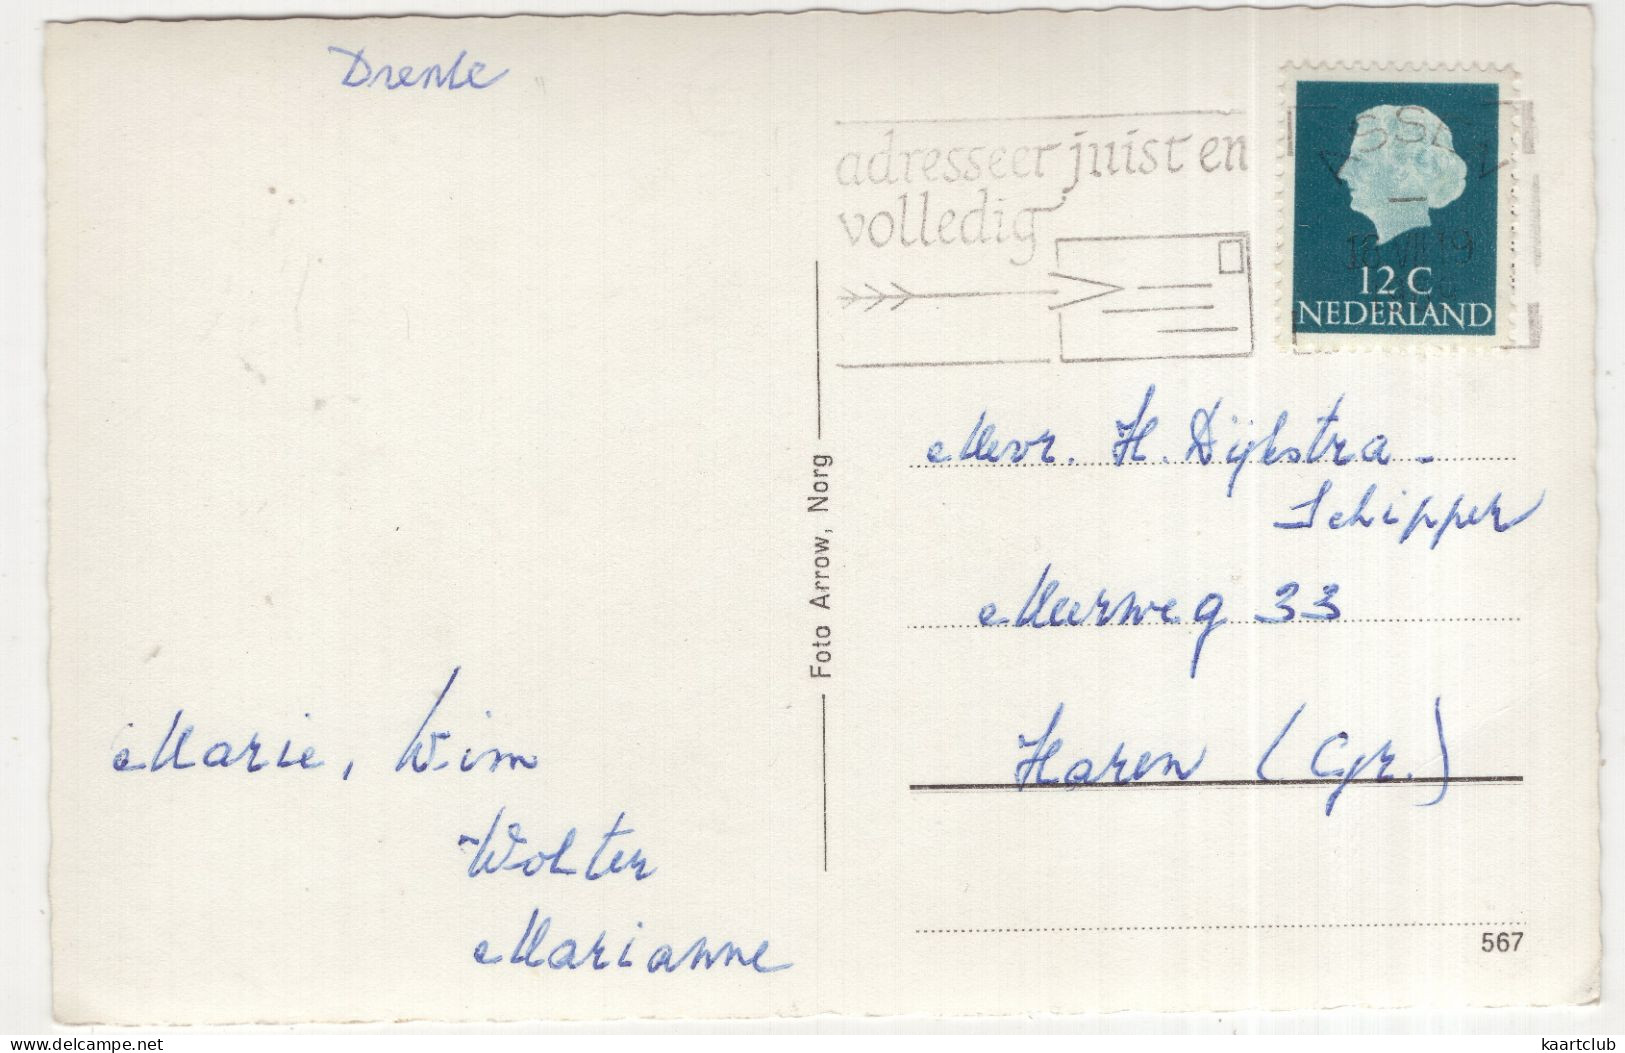 Drente
adresseer juist en
volledig
ASSEN
18 VII 19
12 C
NEDERLAND
Mevr. H. Dijkstra -
Schipper
Meerweg 33
Haren (Gr.)
Foto Arrow, Norg
Marie, Wim
Wolter
Marianne
567
www.delcampe.net
kaartclub